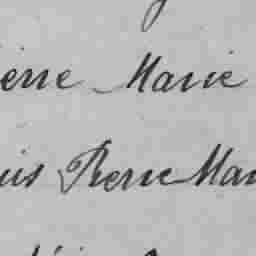 ierre Marie
uis Pierre Mar